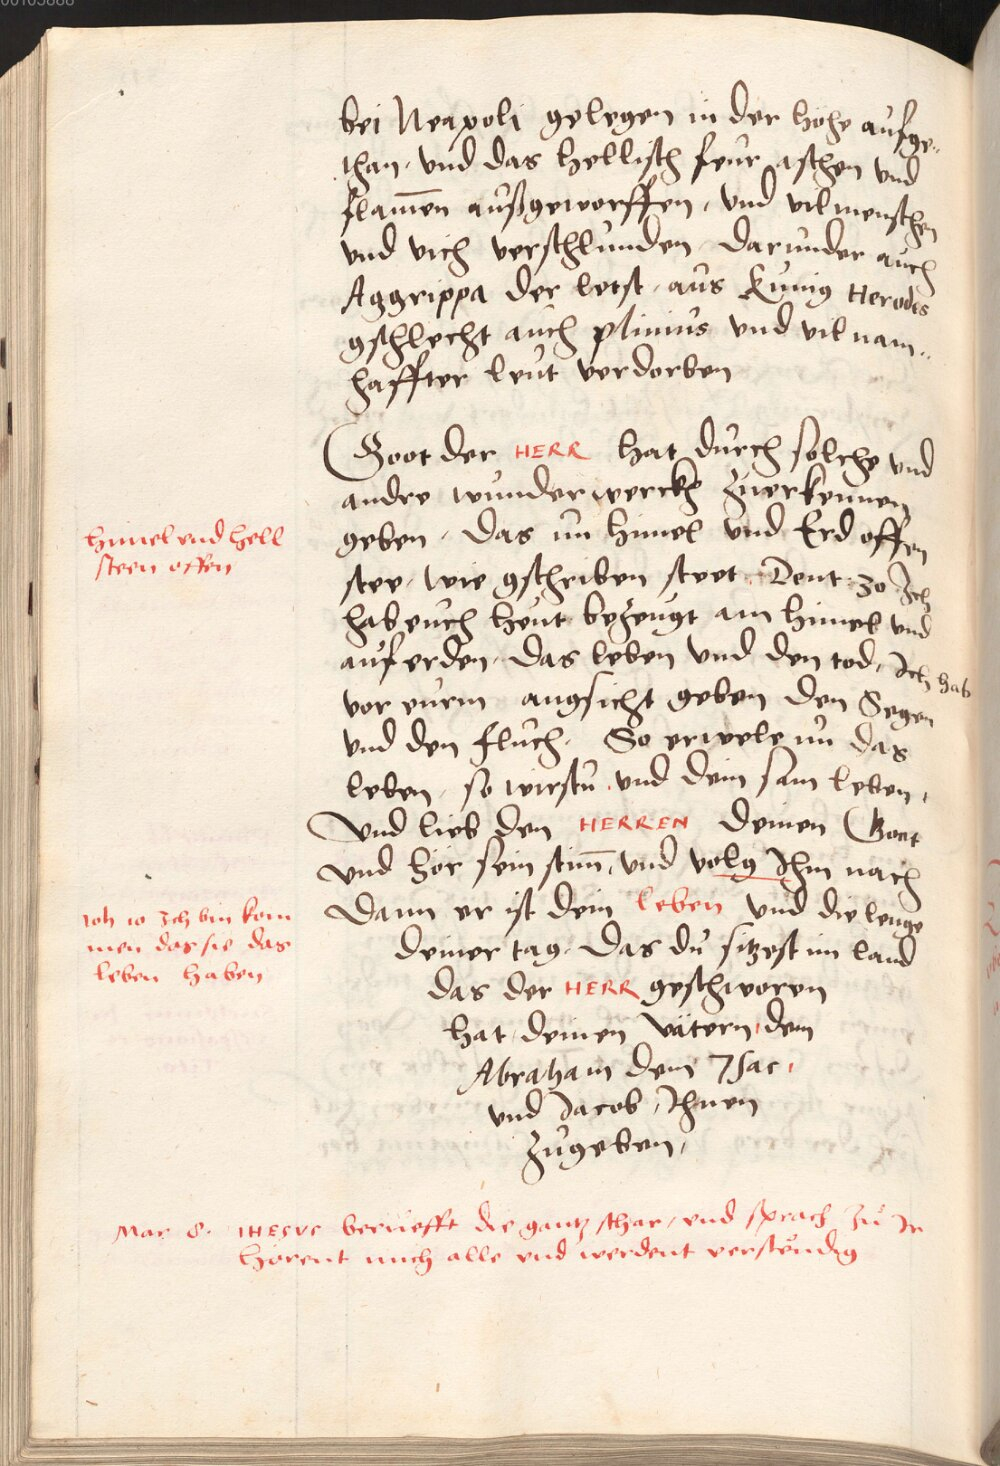 bei Neapoli gelegen in der höhe aufge„
than, und das hellisch feur aschen und
flam̄en außgeworffen, und vil menschen
und vich verschlunden, darunder auch
Aggrippa der letst, aus Kunig Herodes
gschlecht auch plinius und vil nam„
haffter leut verdorben
Goot der HERR hat durch solche und
andre wunderwerckh zuerkennen
geben, Das im himel und Erd offen
stee, wie gschriben steet Deut: 30 Ich
hab euch heut bezeugt am himel und
auf erden, das leben und den tod, Ich hab
vor eurm angsicht geben den Segen
und den fluch, So erwele nu das
leben, so wirstu, und dein sam leben,
Und lieb den HERREN deinen Goot
und hör sein stim̄, und volg Ihm nach
Dann er ist dein leben und die lenge
deiner tag, Das du sitzest im land
das der HERR geschworen
hat, deinen vätern, dem
Abraham dem Isac,
und Jacob, Ihnen
zugeben,
himel und hell
steen offen
Joh 10 Ich bin kom
men das sie das
leben haben
Mar 8. IHESVS berüefft die gantz schar, und sprach zu Ir
hörent mich alle und werdent verstendig